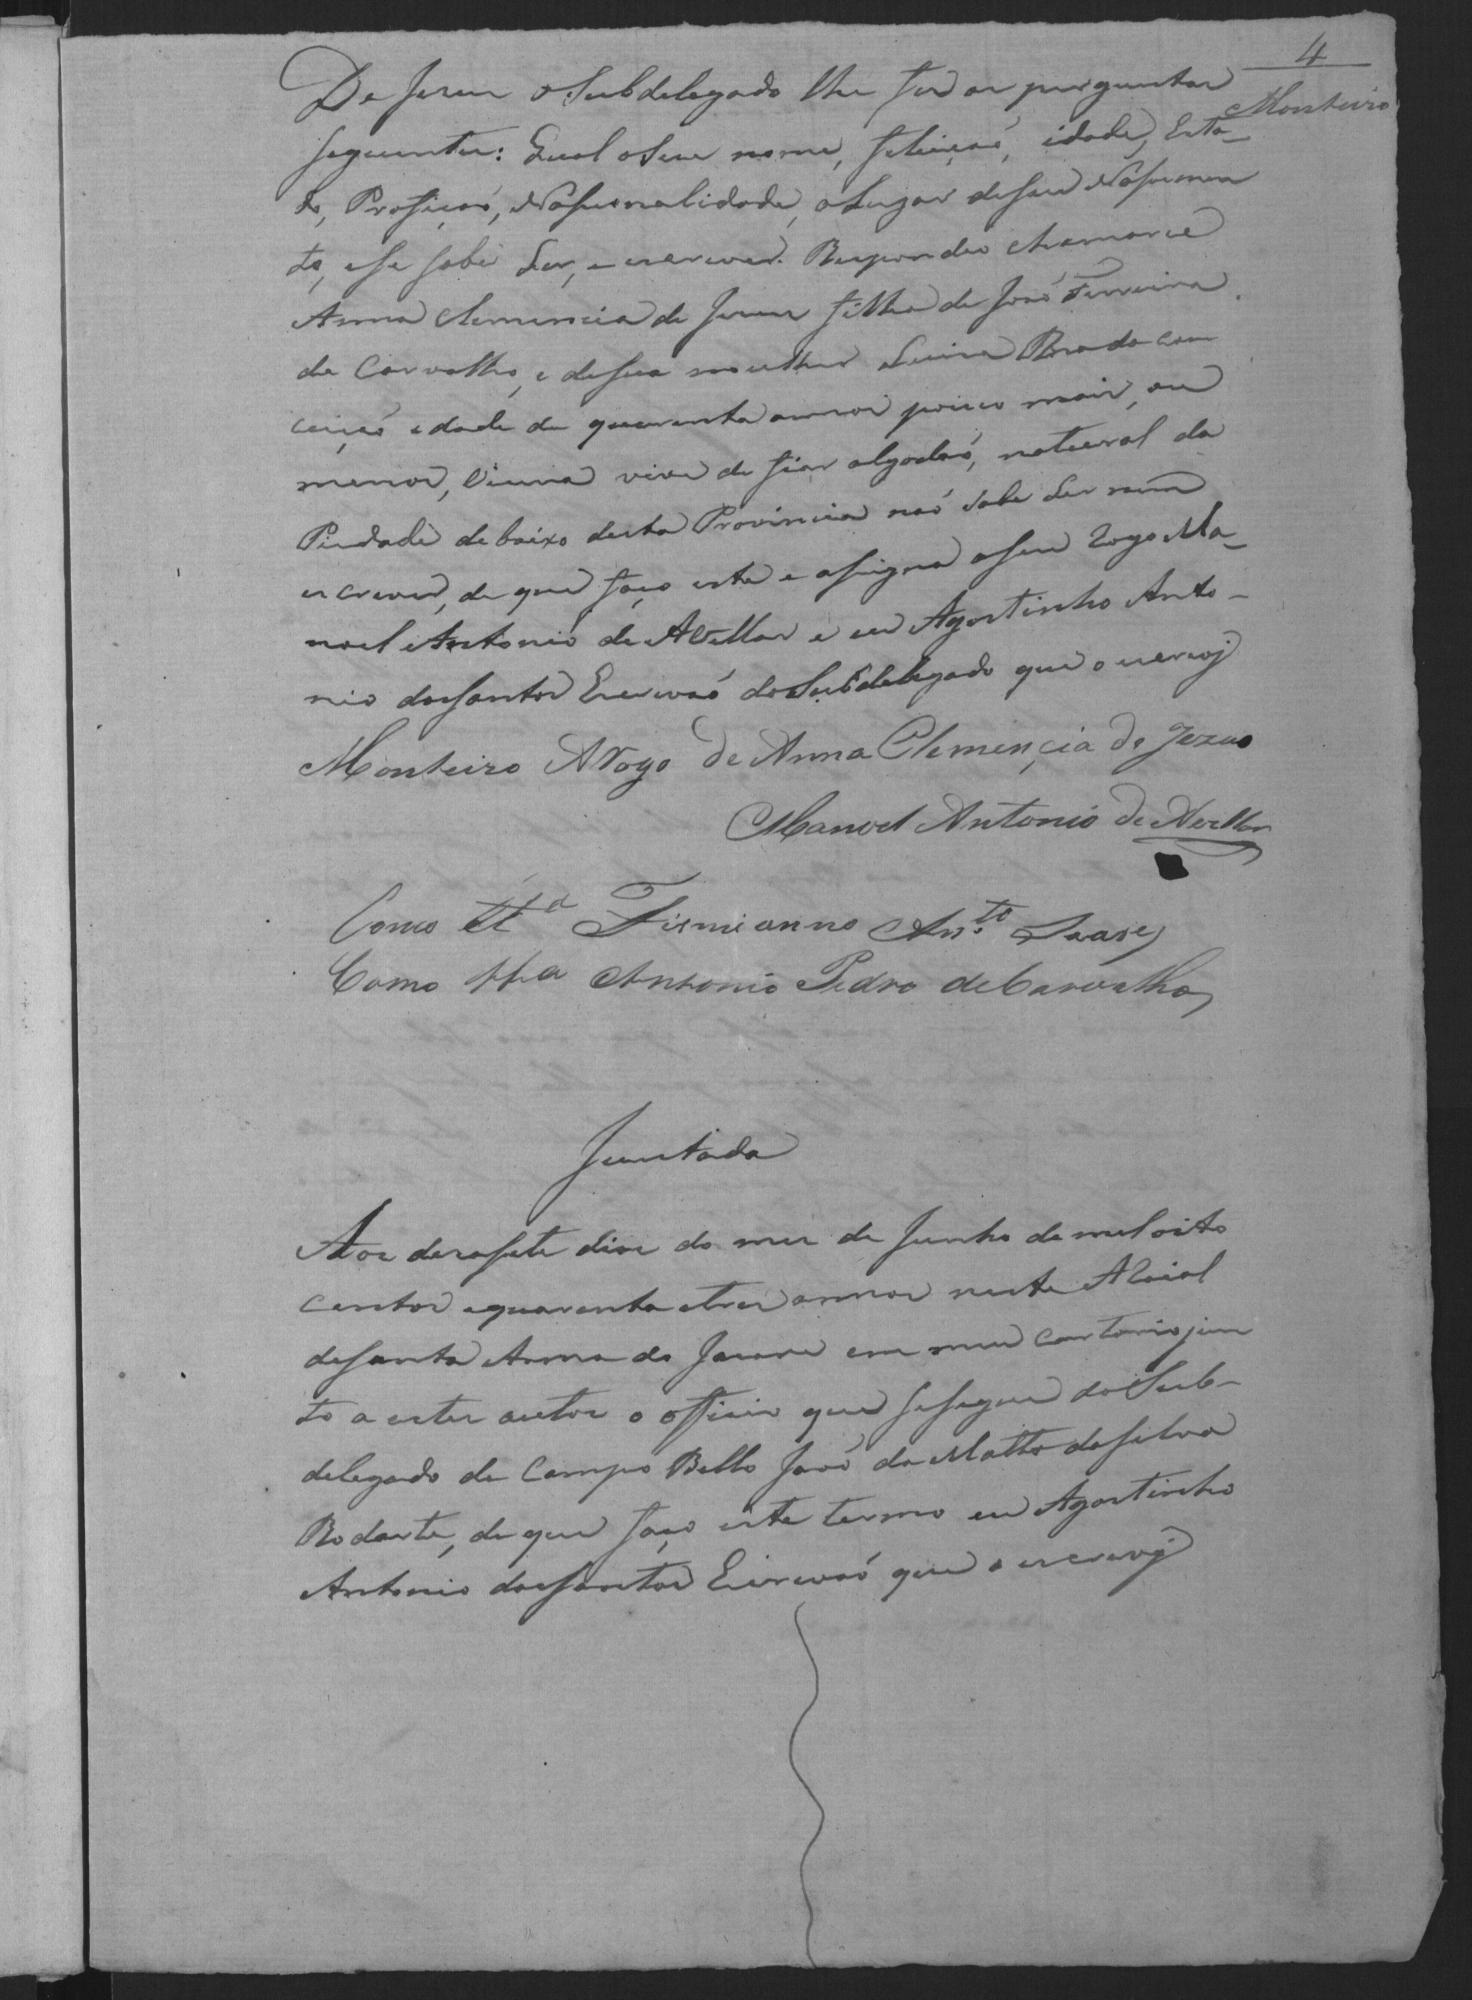 4
Monteiro
De Jesus o Subdelegado lhe fes as perguntas
seguintes: Qual o Seu nome, filiação, idade, Esta-
do, Profição, Nasionalidade, o Lugar de seu Nasimen
to, e se sabe Ler, e escrever. Respondeo chamarce
Anna Clemencia de Jesus filha de José Ferreira
de Carvalho, e de sua mulher Luiza Prado com
ceição e dade de quarenta annos pouco mais, ou
menos, Viuva vive de fiar algodão, natural da
Piedade de baixo desta Provincia não Sabe Ler nem
escrever, de que faço este e asigna a seu Rogo Ma-
noel Antonio de Avellar e eu Agostinho Anto-
nio dos Santos Escrivaó do Subdelegado que o escrevj
Monteiro A Rogo de Anna Clemençia de Jezus
Manoel Antonio de Avellar
Como tta Firmianno Anto. Soares
Como tta Antonio Pedro de Carvalho
Juntada
Aos desasete dias do mes de Junho de mil oito
centos e quarenta e tres annos neste Arraial
de Santa Anna do Jacare em meu Cartorio jun
to a estes autos o officio que se segue do Sub-
delegado de Campo Bello José da Matta da Silva
Rodarte, de que faço este termo eu Agostinho
Antonio dos Santos Escrivaó que o escrevj